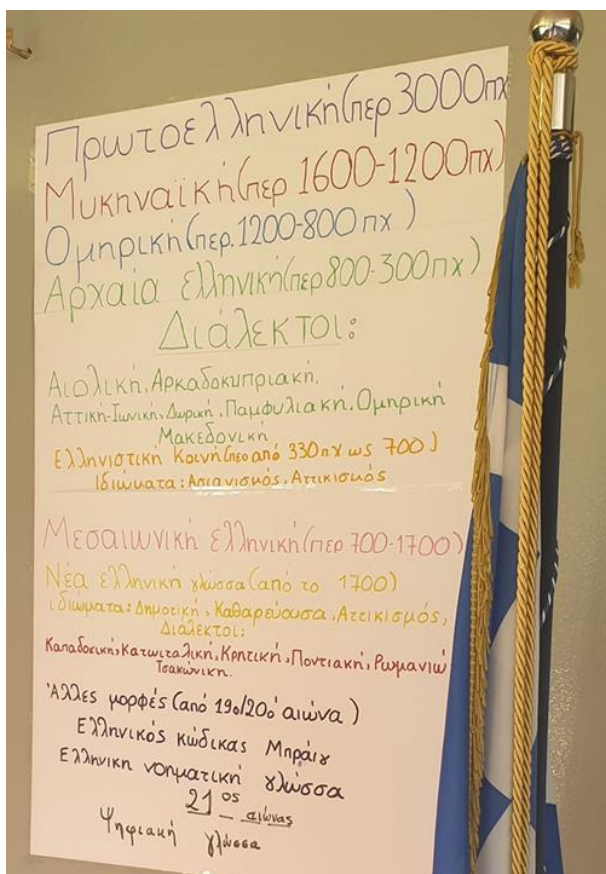 Πρωτοελληνική (περ 3000πχ
Μυκηναϊκή (περ 1600-1200πχ)
Ομηρική (περ. 1200-800 πχ )
Αρχαία ελληνική (περ 800-300πχ)
Διάλεκτοι:
Αιολική, Αρκαδοκυπριακή,
Αττική-Ιωνική, Δωρική, Παμφυλιακή. Ομηρική
Μακεδονική
Ελληνιστική Κοινή (περ από 330πχ ως 700)
Ιδιώματα: Ασιανισμός, Αττικισμός
Μεσαιωνική ελληνική (περ 700-1700)
Νέα ελληνική γλώσσα (από το 1700)
ιδιώματα: Δημοτική, Καθαρεύουσα, Αττικισμός,
Διάλεκτοι:
Καπαδοκική, Κατωιταλική, Κρητική, Ποντιακή, Ρωμανιώ
Τσακώνικη.
Άλλες μορφές (από 19ο/20ό αιώνα)
Ελληνικός κώδικας Μπράιγ
Ελληνικη νοηματική γλώσσα
21ος αιώνας
Ψηφιακή γλώσσα